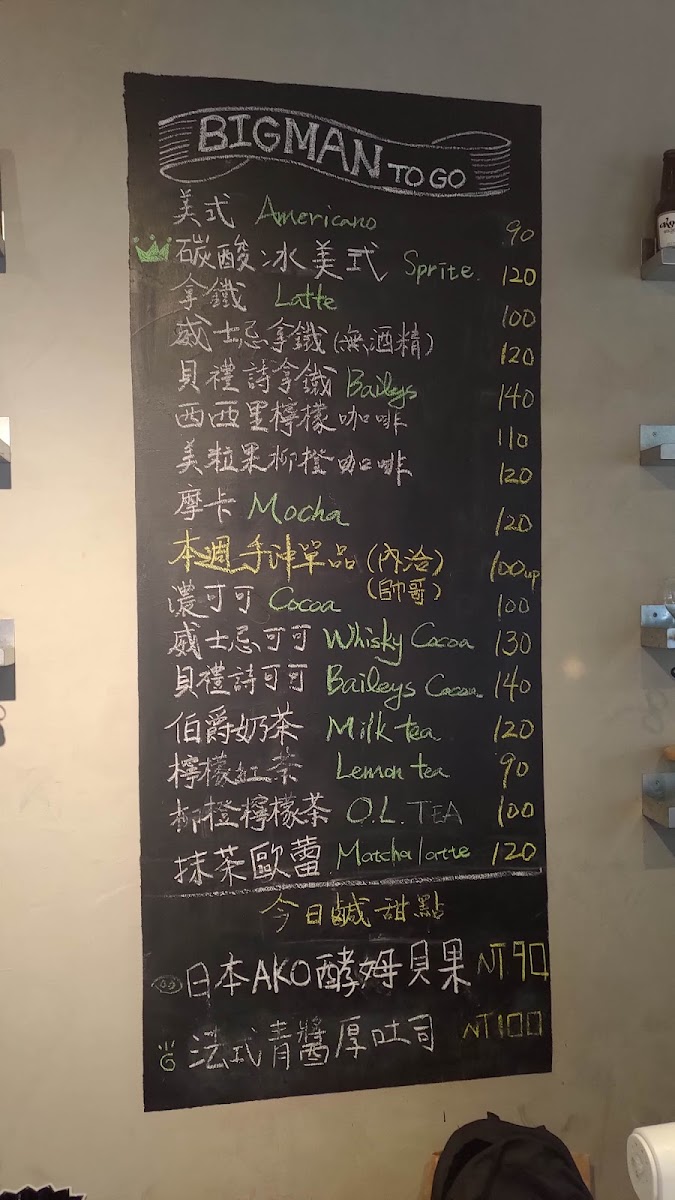 BIGMAN TO GO
美式 Americano 90
碳酸冰美式 Sprite 120
拿鐵 Latte 100
威士忌拿鐵(無酒精) 120
貝禮詩拿鐵 Baileys 140
西西里檸檬咖啡 110
美粒果柳橙咖啡 120
摩卡 Mocha 120
本週手沖單品(內洽) 100up
(帥哥)
濃可可 Cocoa 100
威士忌可可 Whisky Cocoa 130
貝禮詩可可 Baileys Cocoa 140
伯爵奶茶 Milk tea 120
檸檬紅茶 Lemon tea 90
柳橙檸檬茶 O.L. TEA 100
抹茶歐蕾 Matcha latte 120
今日鹹甜點
日本AKO酵姆貝果 NT.90
法式青醬厚吐司 NT100